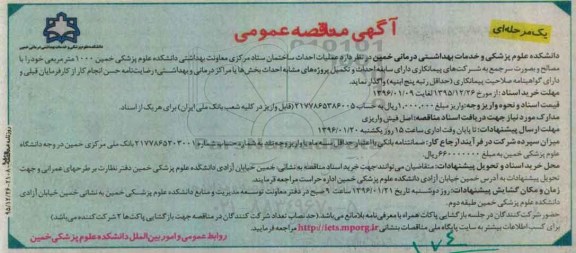 یک مرحله‌ای
آگهی مناقصه عمومی
دانشکده علوم پزشکی و خدمات بهداشتی درمانی خمین
دانشکده علوم پزشکی و خدمات بهداشتی درمانی خمین در نظر دارد عملیات احداث ساختمان ستاد مرکزی معاونت بهداشتی دانشکده علوم پزشکی خمین ۱۰۰۰ متر مربعی خود را با
مصالح و بصورت سر جمع به شرکت‌های پیمانکاری دارای سابقه احداث و تکمیل پروژه‌های مشابه احداث بخش‌ها یا مراکز درمانی و بهداشتی؛ رضایت‌نامه حسن انجام کار از کارفرمایان قبلی و
دارای گواهینامه صلاحیت پیمانکاری (حداقل رتبه پنج ابنیه) واگذار نماید.
مهلت خرید اسناد: از مورخ ۱۳۹۵/۱۲/۲۶ لغایت ۱۳۹۶/۰۱/۰۹
قیمت اسناد و نحوه واریز وجه: واریز مبلغ ۱٬۰۰۰٬۰۰۰ ریال به حساب ۲۱۷۷۸۶۵۳۸۶۰۰۵ (قابل واریز در کلیه شعب بانک ملی ایران) برای هر یک از اسناد.
مدارک مورد نیاز جهت دریافت اسناد مناقصه: اصل فیش واریزی
مهلت ارسال پیشنهادات: تا پایان وقت اداری ساعت ۱۵ روز یکشنبه ۱۳۹۶/۰۱/۲۰
میزان سپرده شرکت در فرآیند ارجاع کار: ضمانتنامه بانکی با اعتبار حداقل سه ماه یا واریز وجه نقد به شماره حساب شماره ۲۱۷۷۸۶۵۲۰۳۰۰۱ بانک ملی مرکزی خمین در وجه دانشگاه
علوم پزشکی خمین به مبلغ ۶۶۰٬۰۰۰٬۰۰۰ ریال
محل خرید اسناد و تحویل پیشنهادات: متقاضیان می‌توانند جهت خرید اسناد مناقصه به نشانی، خمین خیابان آزادی دانشکده علوم پزشکی خمین دفتر نظارت بر طرح‌های عمرانی و جهت
تحویل پیشنهادات به آدرس خمین خیابان آزادی دانشکده علوم پزشکی خمین اداره حراست مراجعه فرمایند.
زمان و مکان گشایش پیشنهادات: روز دوشنبه تاریخ ۱۳۹۶/۰۱/۲۱ ساعت ۹ صبح در دفتر معاونت توسعه مدیریت و منابع دانشکده علوم پزشکی خمین به نشانی خمین خیابان آزادی
دانشکده علوم پزشکی خمین طبقه دوم.
حضور شرکت کنندگان در جلسه بازگشایی پاکات همراه با معرفی نامه بلامانع می‌باشد (حد نصاب تعداد شرکت کنندگان در مناقصه جهت بازگشایی پاکت‌ها ۲ شرکت کننده می‌باشد)
برای کسب اطلاعات بیشتر به سایت پایگاه ملی مناقصات بنشانی http://iets.mporg.ir مراجعه فرمایید.
روابط عمومی و امور بین الملل دانشکده علوم پزشکی خمین